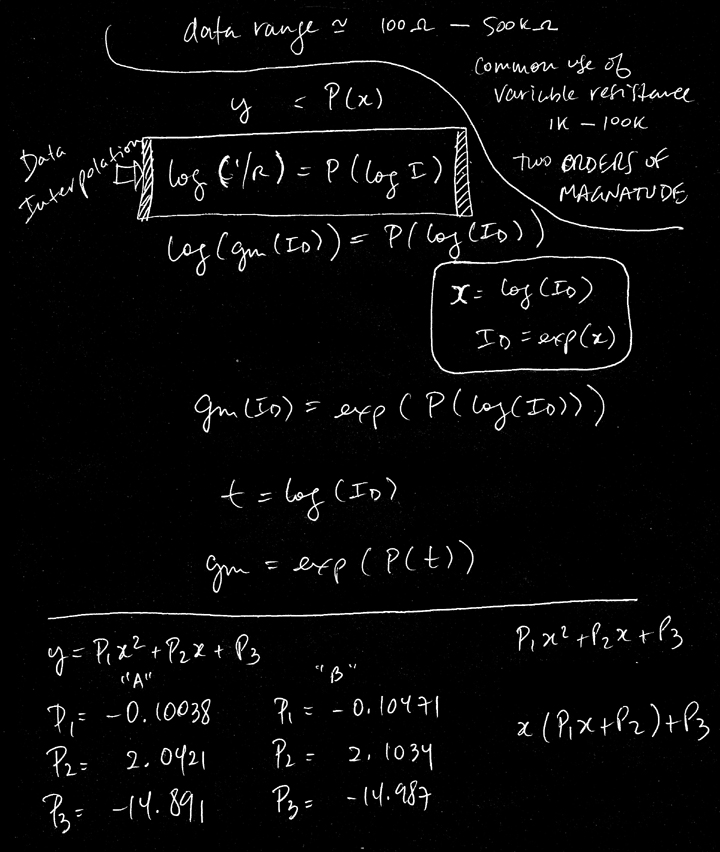 data range ≃ 100Ω – 500kΩ
Common use of
variable resistance
1K – 100K
TWO ORDERS OF
MAGNATUDE
y = P(x)
Data
Interpolation
log (1/R) = P (log I)
log(gm(ID)) = P(log(ID))
x = log(ID)
ID = exp(x)
gm(ID) = exp(P(log(ID)))
t = log(ID)
gm = exp(P(t))
y = P1x² + P2x + P3
P1x² + P2x + P3
"A" "B"
P1 = -0.10038 P1 = -0.10471
x(P1x + P2) + P3
P2 = 2.0421 P2 = 2.1034
P3 = -14.891 P3 = -14.987